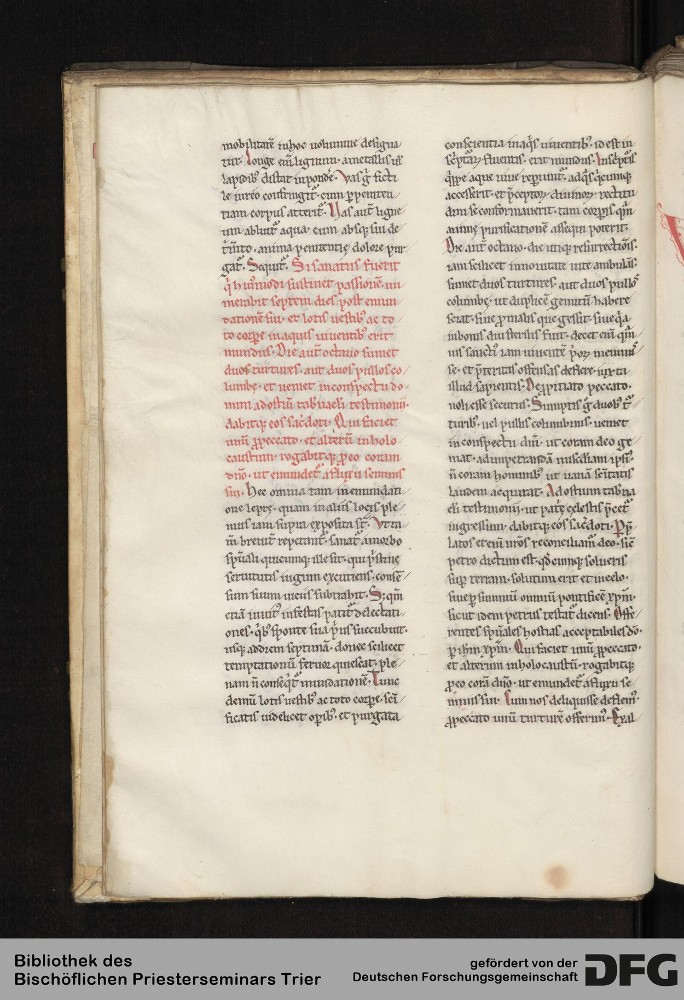 mobilitatē in hoc uolumine designa
tur. Longe em̄ lignum a metallis uł
lapidib; distat in pondē. Vas g̊ ficti
le ideo confringit᷑ cum p peniten
tiam corpus atterit᷑. Vas aut̄ ligne
um abluit᷑ aqua. cum absq; sui de
t̾mēto. anima penitentię dolore pur
gat᷑. Sequit᷑. Si sanatus fuerit
q̇ huiusmodi sustinet passionē. nu
merabit septem dies post emun
dationē sui. et lotis uestib; ac to
to corpe in aquis uiuentib; erit
mundus. Die aut̄ octauo sumet
duos turtures. aut duos pullos co
lumbe. et ueniet in conspectu do
mini ad ostiū tab̾naculi testimonii.
dabitq; eos sac̾doti. Qui faciet
unū p peccato. et alterū in holo
caustum. rogabitq; p eo coram
dn̄o. ut emundet᷑ a fluxu seminis
sui. Hec omnia tam in emundati
one leprę. quam in aliis locis ple
nius iam supra exposita st̄.
sp̄uali quicumq; ille sit. qui p̾stinę
seruitutis iugum excutiens. consē
sum suum uiciis subtrahit. S; qm̄
etiā inuit; infestas patit᷑ delectati
ones. q̇b; sponte sua p̾us succubuit.
usq; ad diem septimū. donec scilicet
temptationū feruor quiescat. ple
nam n̄ conseq̇t᷑ mundationē. Tunc
demū lotis uestib; ac toto corpe. scī
ficatis uidelicet opib;. et purgata
conscientia in aq̇s uiuentib;. id est in
sc̾pt̾is fluentis. erit mundus. In sc̾pt̾is
accesserit. et p̄ceptoꝝ diuinoꝝ rectitu
dini se conformauerit. tam corpis quā
animę purificationē assequi poterit.
Die aut̄ octauo. die utiq; resurrectiōis.
iam scilicet in nouitate uite ambulās.
sumet duos turtures. aut duos pullos
columbę. ut duplicē gemitū habere
sciat. siue p malis que gessit. siue q̇a
in bonis dū sterilis fuit. Decet em̄ quā
uis sanctū iam uiuentē p̾oꝝ meminis
se. et p̄teritas offensas deflere. iuxta
illud sapientis. De ppitiato peccato.
noli esse securus. Sumptis g̊ duob; t᷑
turib;. uel pullis columbinis. ueniet
in conspectu dn̄i. ut coram deo ge
mat. ad impetrandā misc̄diam ipsi᷒.
n̄ coram hominib; ut uanā sc̄itatis
laudem acquirat. Ad ostium tab̾na
culi testimonii. ut pat̾ię celestis p̾ecet᷑
ingressum. dabitq; eos sac̾doti.
latos et em̄ nr̄os reconciliam᷑ deo. sic̄
petro dictum est. Qdcumq; solueris
sup terram. solutum erit et in celo.
siue p summū om̄ium pontificē xp̄m.
sicut idem petrus testat᷑ dicens. Offe
rentes sp̄uales hostias acceptabiles dō
p ih̄m xp̄m. Qui faciet unū p peccato.
et alterum in holocaustū. rogabitq;
p eo corā dn̄o. ut emundet᷑ a fluxu se
minis sui. Cum nos deliquisse deflem᷒.
p peccato unū turturē offerim᷒. Exal
Bibliothek des
Bischöflichen Priesterseminars Trier
gefördert von der
Deutschen Forschungsgemeinschaft
DFG